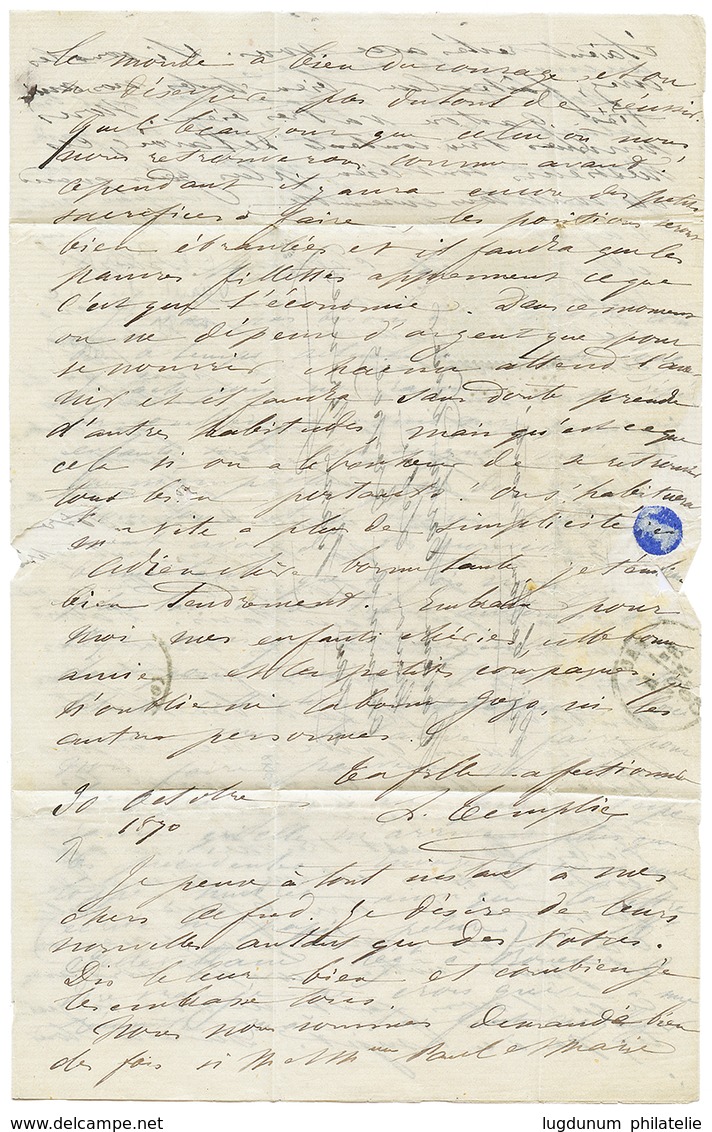 le monde a bien du courage et on
désespère pas du tout de réussir.
quel beau jour que celui où nous
nous retrouverons comme avant,
cependant il y aura encore des petits
sacrifices à faire, les positions seront
bien ébranlées et il faudra que les
pauvres fillettes apprennent ce que
c'est que l'économie. Dans ce moment
on ne dépense d'argent que pour
se nourrir, chacun attend l'ave
nir et il faudra sans doute prendre
d'autres habitudes, mais qu'est ce que
cela si on a le bonheur de se retrouver
tous bien portants. On s'habituera
vite a plus de simplicité,
Adieu chère bonne tante, je t'em
bien tendrement. Embrasse pour
moi mes enfants chéries, cette bonne
amie et les petits compagnes,
n'oublie ni la bonne Gogo, ni les
autres personnes.
Ta fille affectionnée
30 Octobre L. Templier
1870
Je pense à tout instant à mes
chers Alfred. Je désire de leurs
nouvelles autant que des vôtres.
Dis leur bien et combien je
les embrasse tous
Nous nous sommes demandé bien
des fois si M et Mme Paul et Marie
lugdunum philatelie